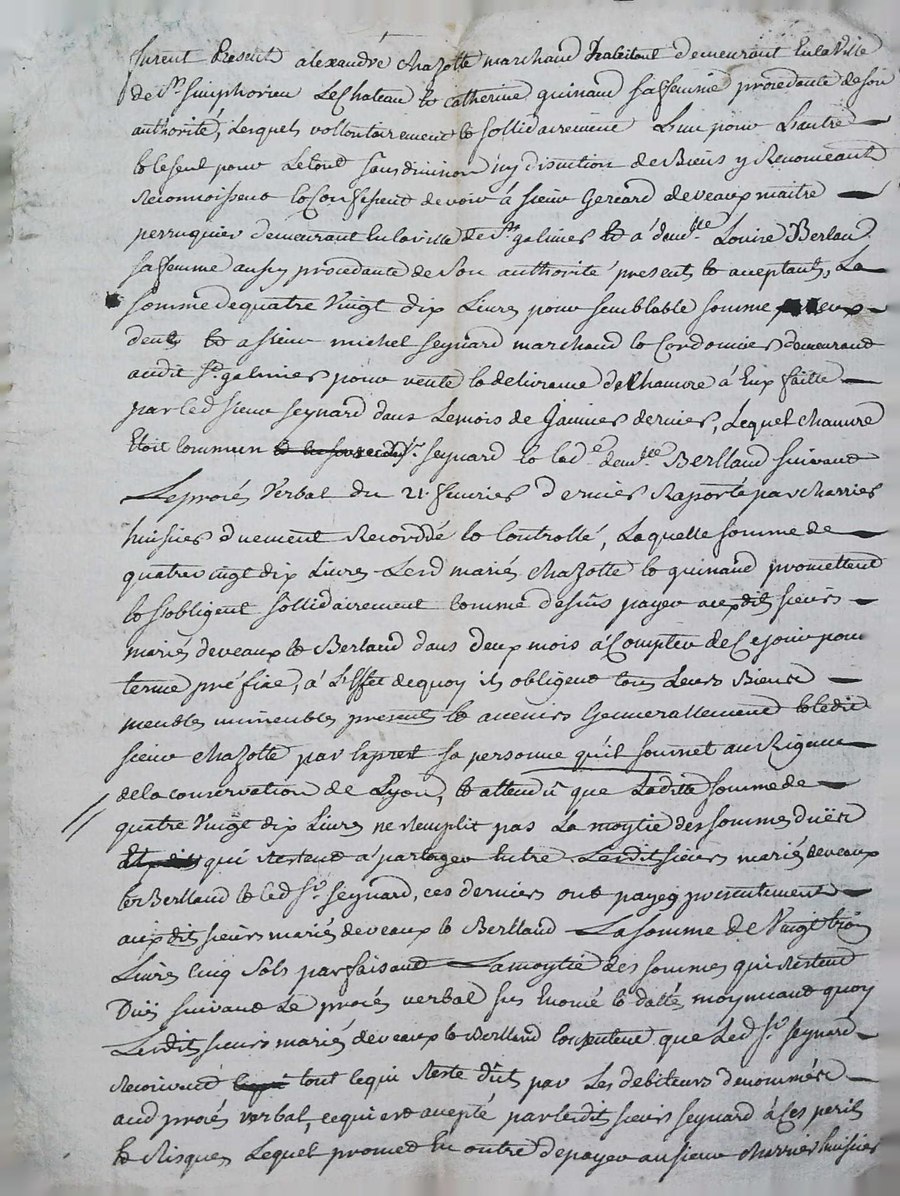 furent Present alexandre chazotte marchand habitant demeurant En la Ville
de St. simphorien Le Chateau Et catherine guinand sa femme procedante de son
authorité, Lesquels vollontairement Et sollidairement L'un pour L'autre
Et le seul pour Le tout sans division ny discution de Biens y Renonceant
Reconnoissent Et Confessent devoir à sieur Gerard deveaux maitre
perruquier demeurant En la ville de St. galmier Et a demlle. Louise Berland
sa femme aussy procedante de son authorité present Et aceptant, La
somme de quatre Vingt dix Livres pour semblable somme a eux
deub Et a sieur michel seynard marchand Et Cordonnier demeurant
audit St. galmier pour vente Et delivrance de Chanvre à Eux faitte
par led. sieur seynard dans Le mois de Janvier dernier, Lequel chanvre
Etoit commun sr. seynard Et lade. demlle. Berlland suivant
Le procés Verbal du 21 fevrier dernier Raporté par charrier
huissier duement Recordé Et Controllé, Laquelle somme de
quatre vingt dix Livres Lesd mariés chazotte Et guinand promettent
Et s'obligent sollidairement comme dessus payer auxdits sieurs
mariés deveaux Et Berland dans deux mois à Compter de Ce jour pour
terme préfixe, à L'Effet de quoy ils obligent tous Leurs Biens
meubles immeubles present Et avenirs Generallement Et ledit
sieur chazotte par Exprest sa personne qu'il soumet au Rigeur
de la conservation de Lyon, Et attendû que Laditte somme de
quatre Vingt dix Livres ne Remplit pas La moytié des sommes duës
qui Restent a partager Entre Lesdits sieurs mariés deveaux
Et Berlland Et led sr. seynard, ces derniers ont payés presentement
auxdits sieurs mariés deveaux Et Berlland La somme de Vingt trois
Livres Cinq Sols parfaisant La moytié des sommes qui Restent
Duës suivant Le procés verbal sus Enoncé Et datté moyennant quoy
Lesdits sieurs mariés deveaux Et Berlland consentent que Led sr. seynard
Recoivent tout Ce qui Reste dût par Les debiteurs denommés
aud procés verbal, ce qui est acepté par ledit sieur seynard à Ces perils
Et Risques Lequel promet En outre de payer au sieur charrier huissier